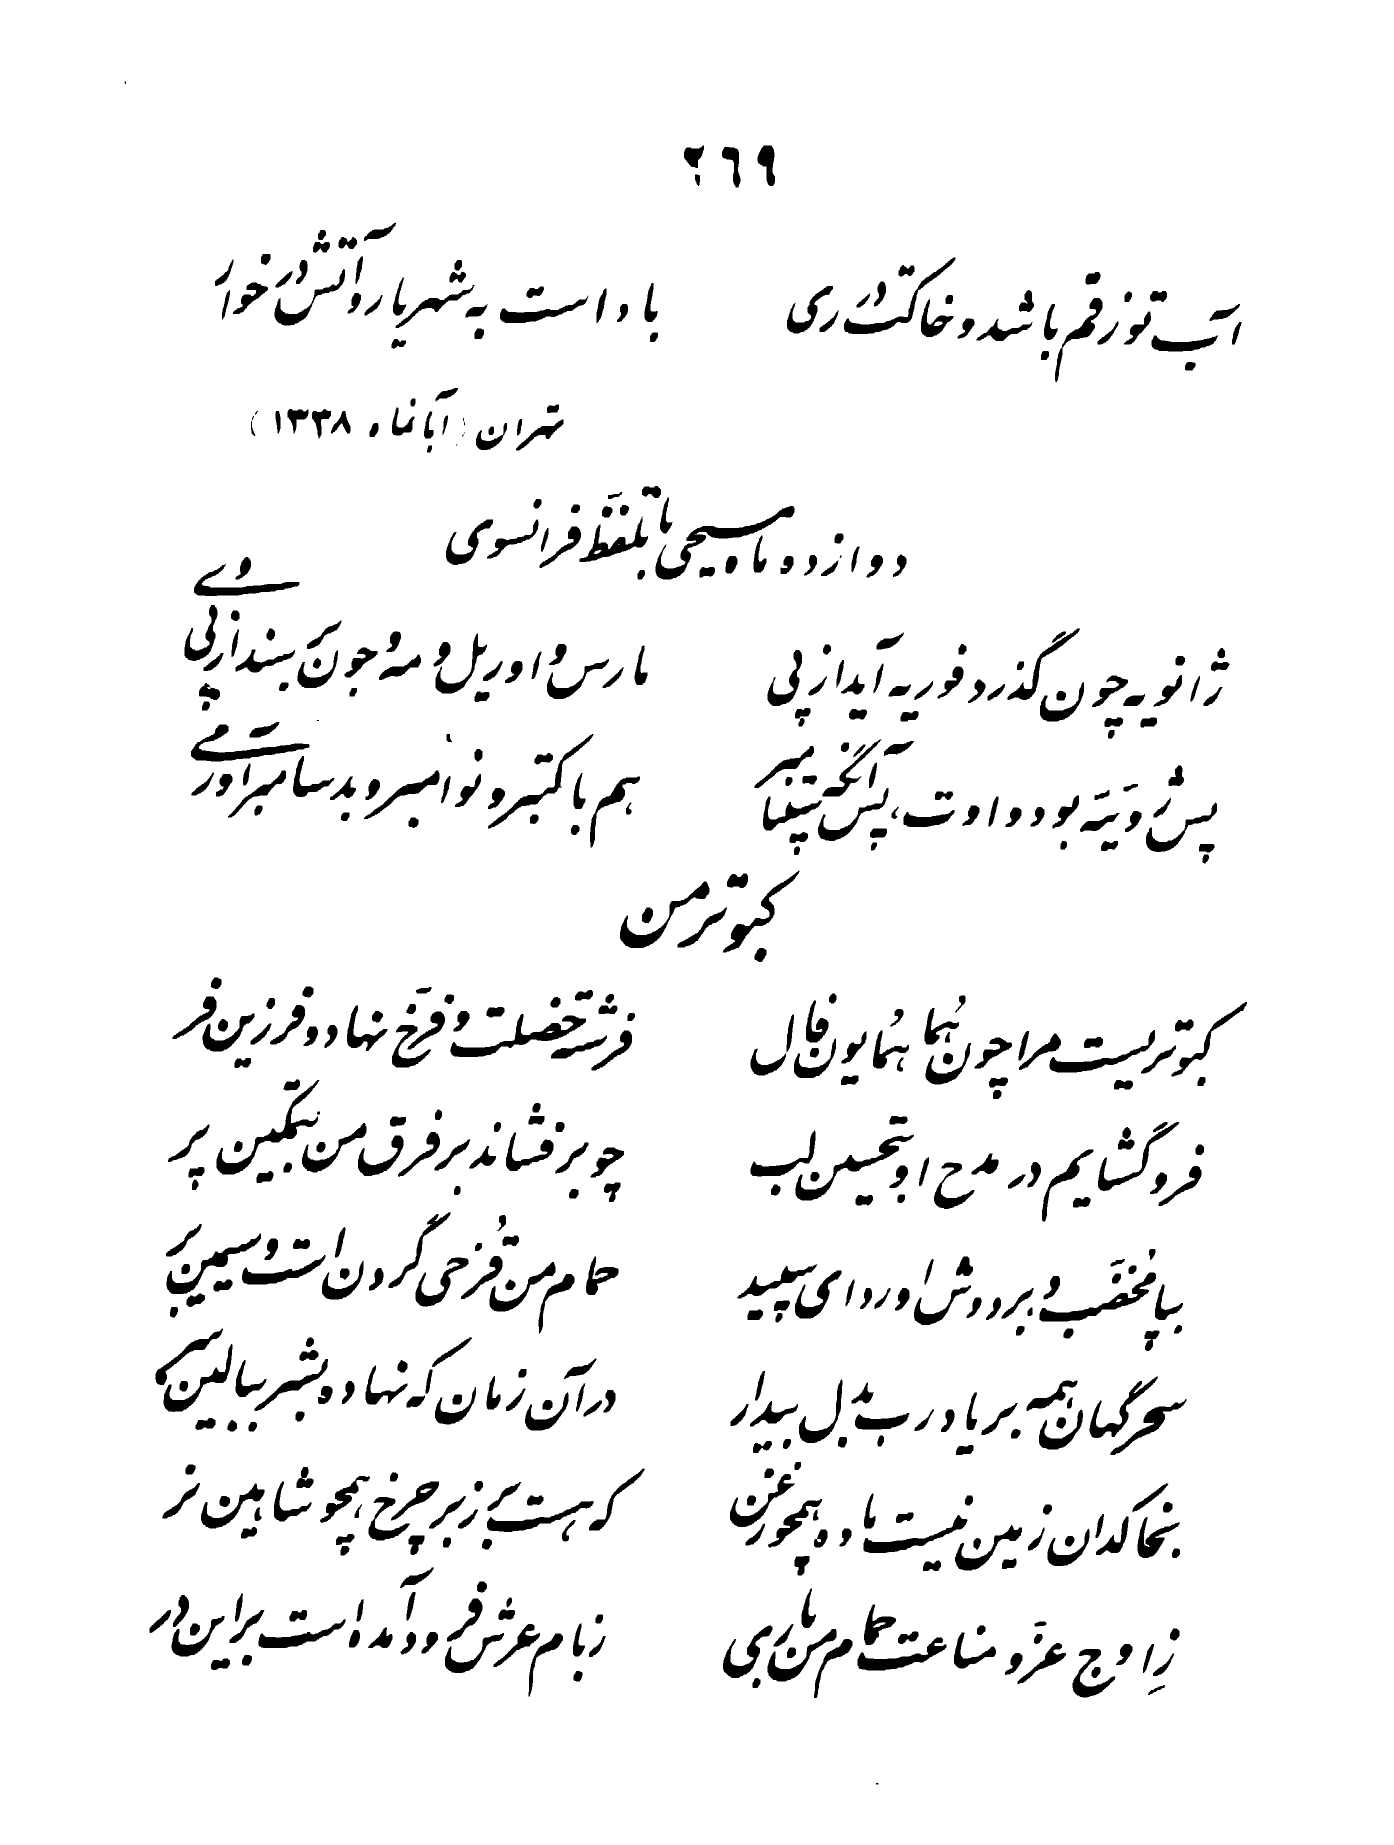 ۲۶۹
آب تو ز قم باشد و خاکت در ری
باد است به شهریار و آتش در خوار
تهران (آبانماه ۱۳۳۸)
دوازده ماه مسیحی با تلفّظ فرانسوی
ژانویه چون گذرد فوریه آید از پی
مارس و اوریل و مه و جون بَر سپند از پی وی
پس ژویَیّه بود و اوت، پس آنگه سپتامبر
هم با کتبر و نوامبر و بدسامبر آور می
کبوتر من
کبوتریست مرا چون هُما هُمایون فال
فرشته خصلت و فرّخ نهاد و فرزین فر
فرو گشایم در مدح او بتحسین لب
چو بر فشاند بر فرق من بتمکین پر
بپا مُخضّب و بر دوش او ردای سپید
حمام من قُزحی گردن است و سیمین بَر
سحرگهان همه بر یاد رب بدل بیدار
در آن زمان که نهاده بشر ببالین سر
بخاکدان زمین نیست ماده همچو زغن
که هست بر زبر چرخ همچو شاهین نر
زِ اوج عزّ و مناعت حمام من باری
ز بام عرش فرود آمده است بر این در